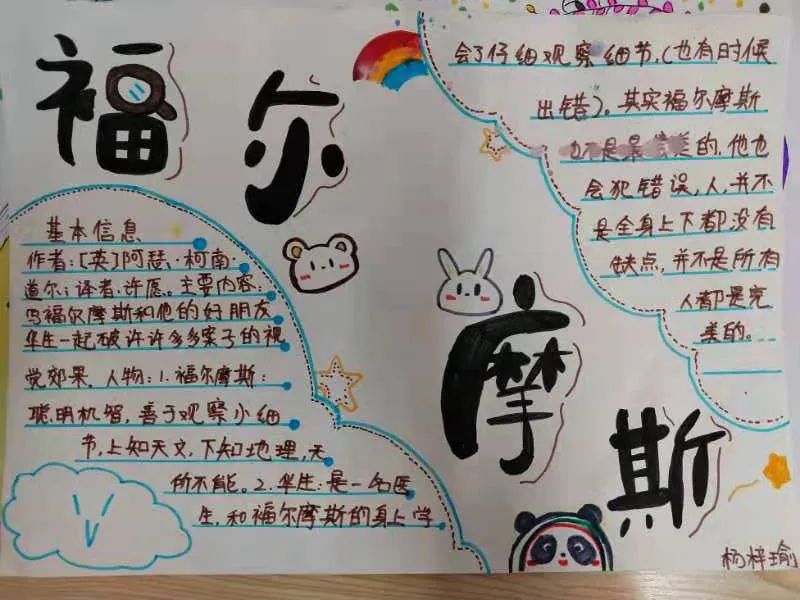 福尔摩斯
基本信息
作者：[英]阿瑟·柯南·
道尔；译者：许愿。主要内容：
写福尔摩斯和他的好朋友
华生一起破许许多多案子的视
觉效果。人物：1.福尔摩斯：
聪明机智，善于观察小细
节，上知天文，下知地理，无
所不能。2.华生：是一名医
生，和福尔摩斯的身上学
会了仔细观察细节，（也有时候
出错）。其实福尔摩斯
也不是最的，他也
会犯错误，人，并不
是全身上下都没有
缺点，并不是所有
人都是完
美的。
V
杨梓瑜